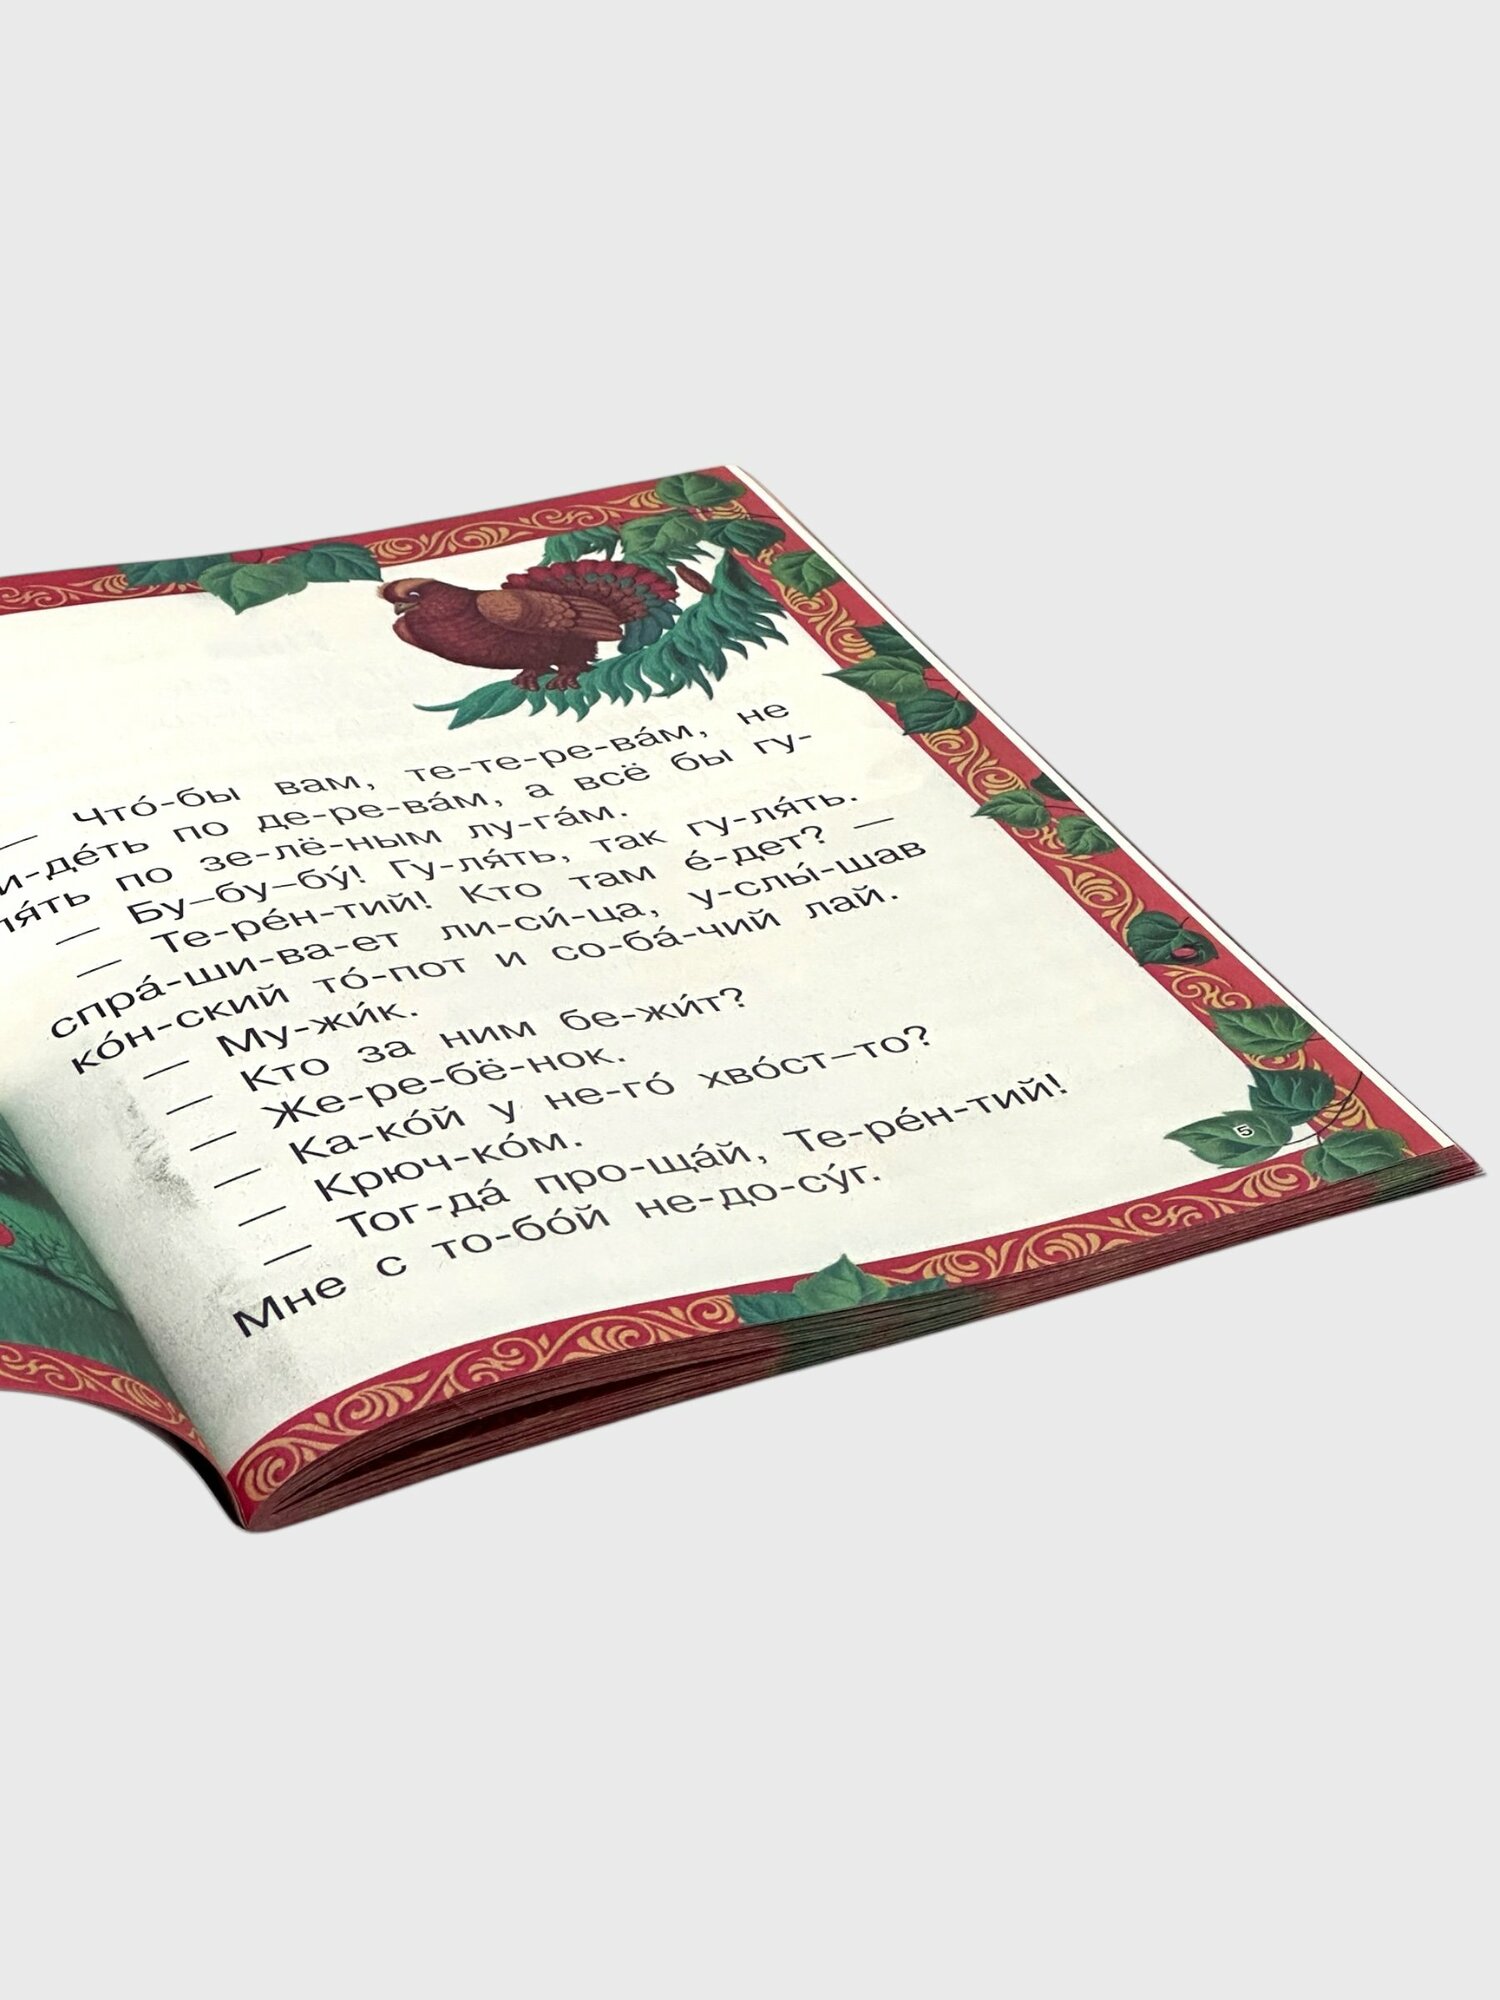 — Что́-бы вам, те-те-ре-ва́м, не
и-де́ть по де-ре-ва́м, а всё бы гу-
ля́ть по зе-лё-ным лу-га́м.
— Бу–бу–бу́! Гу-ля́ть, так гу-ля́ть.
— Те-ре́н-тий! Кто там е́-дет? —
спра́-ши-ва-ет ли-си́-ца, у-слы́-шав
ко́н-ский то́-пот и со-ба́-чий лай.
— Му-жи́к.
— Кто за ним бе-жи́т?
— Же-ре-бё-нок.
— Ка-ко́й у не-го́ хво́ст–то?
— Крюч-ко́м.
— Тог-да́ про-ща́й, Те-ре́н-тий!
Мне с то-бо́й не-до-су́г.
5